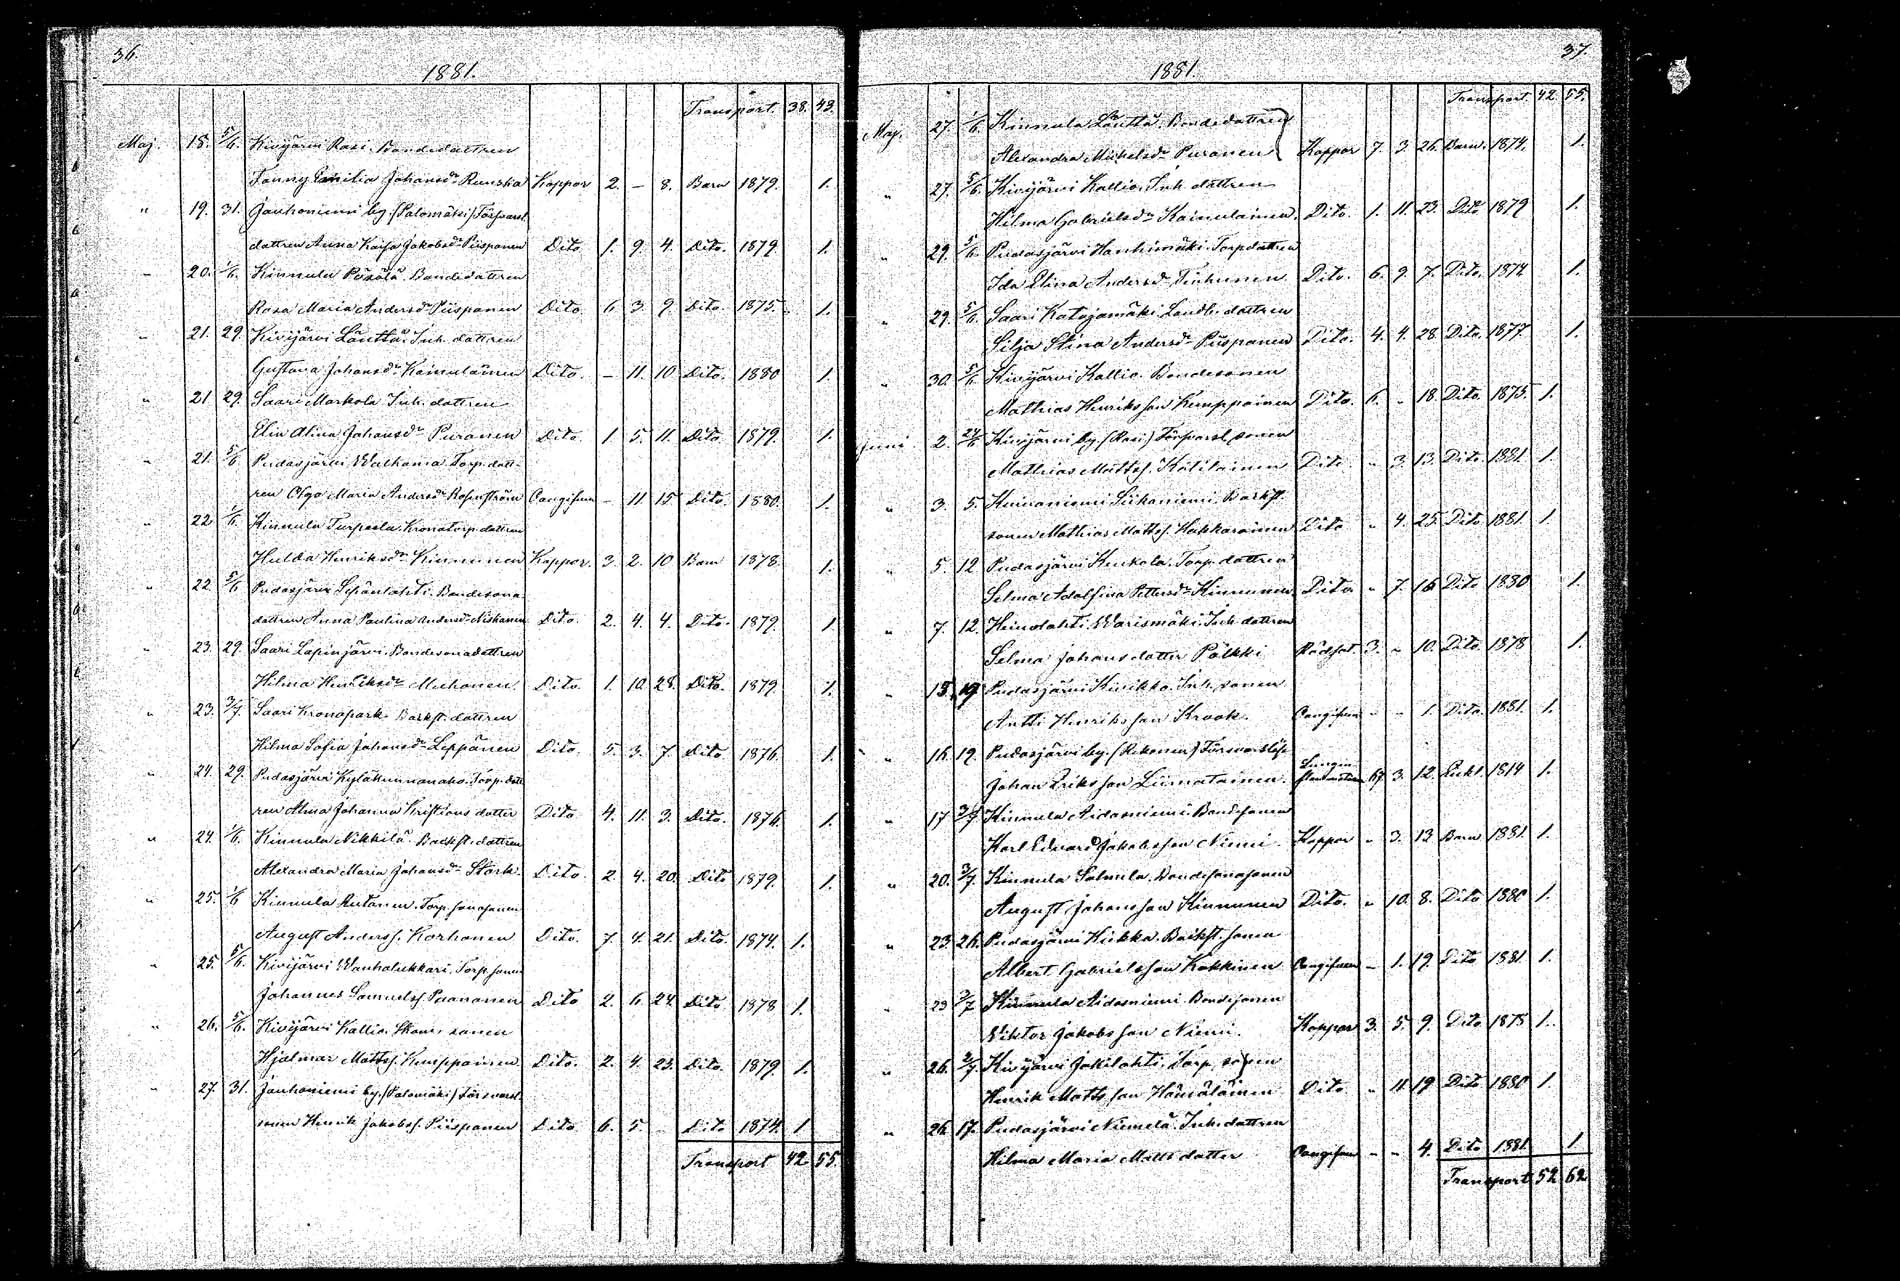 36.
1881.
Transport. 38. 43.
Maj. 18. 5/6. Kivijärvi Rasi. Bondedattren
Fanny Emilia Johansdr Runska Koppor 2. – 8. Barn 1879. 1.
" 19. 31. Jauhoniemi by. (Palomäki) Försvarsl.
dattren Anna Kaisa Jakobsdr Piispanen Dito. 1. 9. 4. Dito. 1879. 1.
" 20. 1/6. Kinnula Pösölä. Bondedattren
Rosa Maria Andersdr Piispanen Dito. 6. 3. 9. Dito. 1875. 1.
" 21. 29. Kivijärvi Lauttä. Inh. dattren
Gustava Johansdr Kainulainen Dito. – 11. 10. Dito. 1880 1.
" 21 29. Saari Markola Inh. dattren
Elin Alina Johansdr Puranen Dito. 1. 5. 11. Dito. 1879. 1.
" 21. 5/6 Pudasjärvi Walkama. Torp. datt-
ren Olga Maria Andersdr Rosenström Lungifvn – 11 15. Dito. 1880. 1.
" 22 1/6. Kinnula Turpeela. Kronotorp. dattren
Hulda Henriksdr Kinnunen Koppor. 3. 2. 10 Barn 1878. 1.
" 22 5/6 Pudasjärvi Lepänlahti. Bondesona-
dattren Anna Paulina Andersdr Niskanen Dito. 2. 4. 4. Dito. 1879. 1.
" 23. 29 Saari Lapinjärvi. Bondesonadattren
Hilma Henriksdr Muhonen Dito. 1. 10. 28. Dito. 1879. 1.
" 23. 3/7. Saari Kronopark. Backst. dattren
Hilma Sofia Johansdr Leppänen Dito. 5. 3. 7. Dito 1876. 1.
" 24. 29. Pudasjärvi Kyläkunnanaho. Torp. datt
ren Alma Johanna Kristians datter Dito 4. 11. 3. Dito. 1876. 1.
" 24. 1/6. Kinnula Nikkilä. Backst. dattren
Alexandra Maria Johansdr Stark. Dito. 2. 4. 20. Dito 1879. 1.
" 25. 1/6 Kinnula Rutanen. Torp. sonasonen
August Anderss. Korhonen Dito. 7. 4. 21. Dito. 1874. 1.
" 25. 5/6. Kivijärvi Wanhalukkari. Torp. sonen
Johannes Samuelss. Paananen Dito 2. 6. 24. Dito 1878 1.
" 26. 5/6. Kivijärvi Kallio. sonen
Hjalmar Mattss. Kemppainen Dito. 2. 4. 23. Dito. 1879. 1.
" 27. 31. Jauhoniemi by. (Palomäki) Försvarsl.
sonen Henrik Jakobss. Piispanen Dito. 6. 5. – Dito 1874. 1
Transport 42 55.
37.
1881.
Transport. 42. 55.
Maj. 27. 1/6. Kinnula Lauttä. Bondedattren
Alexandra Mickelsdr Puranen Koppor 7. 3. 26. Barn. 1874. 1.
" 27. 5/6. Kivijärvi Kallio. Inh. dattren
Hilma Gabrielsdr Kainulainen. Dito. 1. 11. 23. Dito 1879 1.
" 29. 5/6. Pudasjärvi Hanhimäki. Torp. dattren
Ida Elina Andersdr Tiihonen Dito. 6. 9. 7. Dito. 1874 1.
" 29. 5/6. Saari Katajamäki. Landb. dattren
Silja Stina Andersdr Piispanen Dito. 4. 4. 28. Dito. 1877 1.
" 30. 5/6. Kivijärvi Kallio. Bondesonen
Mathias Henriksson Kemppainen Dito. 6. " 18. Dito. 1875. 1.
Juni. 2. 24/6 Kivijärvi by. (Rasi) Försvarsl. sonen
Mathias Mattss. Kotilainen Dito. " 3. 13. Dito. 1881. 1.
" 3. 5. Kuivaniemi Siikaniemi. Backst.
sonen Mathias Mattss. Hakkarainen Dito " 4. 25. Dito 1881. 1.
" 5. 12. Pudasjärvi Keukola. Torp. dattren
Selma Adolfina Pettersdr Kinnunen Dito " 7. 16 Dito 1880 1.
" 7. 12. Heinolahti. Warismäki. Inh. dattren
Selma Johans datter Pölkki Rödsot 3. " 10. Dito. 1878 1.
" 15. 19. Pudasjärvi Kivikko. Inh. sonen
Antti Henriksson Krook. Lungifvn " " 1. Dito. 1881. 1.
" 16. 19. Pudasjärvi by. (Rekonen) Försvarslöse
Johan Eriksson Liimatainen. 67 3. 12. 1814 1.
" 17 3/7 Kinnula Aidasniemi Bondesonen
Karl Edvard Jakobsson Niemi. Koppor " 3. 13 Barn 1881. 1.
" 20. 3/7. Kinnula Salmela. Bondesonasonen
August Johansson Kinnunen Dito. " 10 8. Dito 1880 1.
" 23. 26. Pudasjärvi Kukka. Backst. sonen
Albert Gabrielsson Kokkinen Lungifvn – 1. 19. Dito 1881 1.
" 23 3/7 Kinnula Aidasniemi. Bondesonen
Viktor Jakobsson Niemi. Koppor 3. 5. 9. Dito 1878 1.
" 26. 3/7. Kivijärvi Jokilahti. Torp. sonen
Henrik Mattsson Hämäläinen Dito. " 11 19 Dito 1880 1
" 26. 17. Pudasjärvi Niemelä. Inh. dattren
Hilma Maria Matts datter Lungifvn " " 4. Dito 1881. 1
Transport 52 62